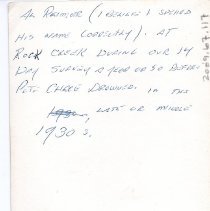 AL REIMER (I BELIEVE I SPELLED
HIS NAME CORRECTLY). AT
ROCK CREEK DURING OUR 14
DAY SURVEY A YEAR OR SO BEFORE
PETE CHASE DROWNED. IN THE
LATE OR MIDDLE
1930 S.
2009.67.117